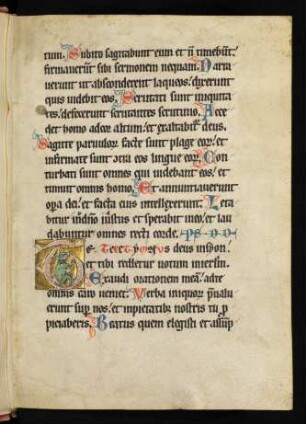 tum. Subito sagittabunt eum et n̄ timebūt:
firmauerūt sibi sermonem nequam. Narra
uerunt ut absconderent laqueos: dixerunt
quis uidebit eos. Scrutati sunt iniquita
tes: defecerunt scrutantes scrutinio. Acce
det homo ad cor altum: et exaltabit̄ deus.
Sagitte paruulor̄ facte sunt plage eor̄: et
infirmate sunt cōtra eos lingue eor̄. Con
turbati sunt omnes qui uidebant eos: et
timuit omnis homo. Et annuntiauerunt
opa dei: et facta eius intellexerunt. Leta
bitur iustus in dn̄o et sperabit in eo: et lau
dabuntur omnes recti corde.
Te decet ymnus deus in syon:
et tibi reddetur uotum in ierlm̄.
Exaudi orationem meā: ad te
omnis caro ueniet. Verba iniquor̄ p̄ualu
erunt sup̄ nos: et impietatib; nostris tu p̄
piciaberis. Beatus quem elegisti et assūp